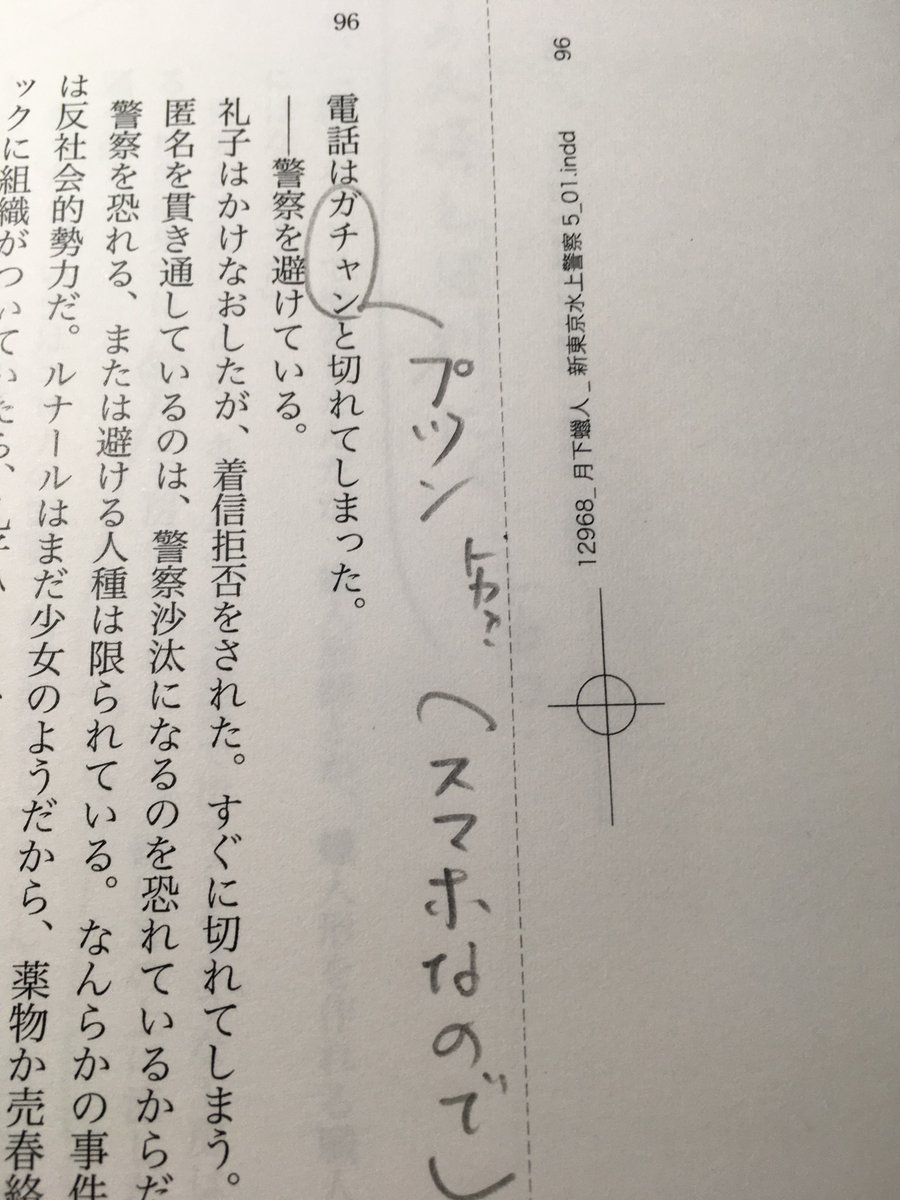 96
12968_月下蠟人_新東京水上警察5_01.indd
96
プツン
トカ?
(スマホなので
電話はガチャンと切れてしまった。
――警察を避けている。
礼子はかけなおしたが、着信拒否をされた。すぐに切れてしまう。
匿名を貫き通しているのは、警察沙汰になるのを恐れているからだ
警察を恐れる、または避ける人種は限られている。なんらかの事件
は反社会的勢力だ。ルナールはまだ少女のようだから、薬物か売春絡
ックに組織がついていたら、礼子